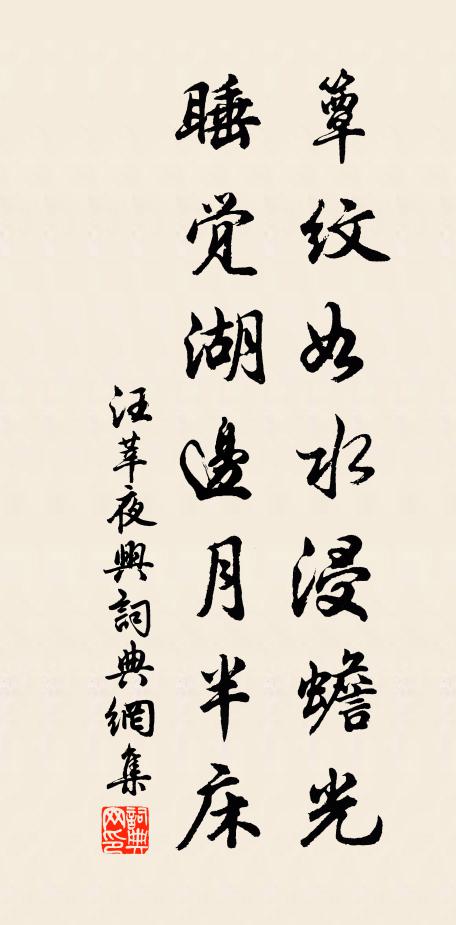 簟纹如水浸蟾光
睡觉湖邊月半床
汪莘夜興詞典網集
詞典網印